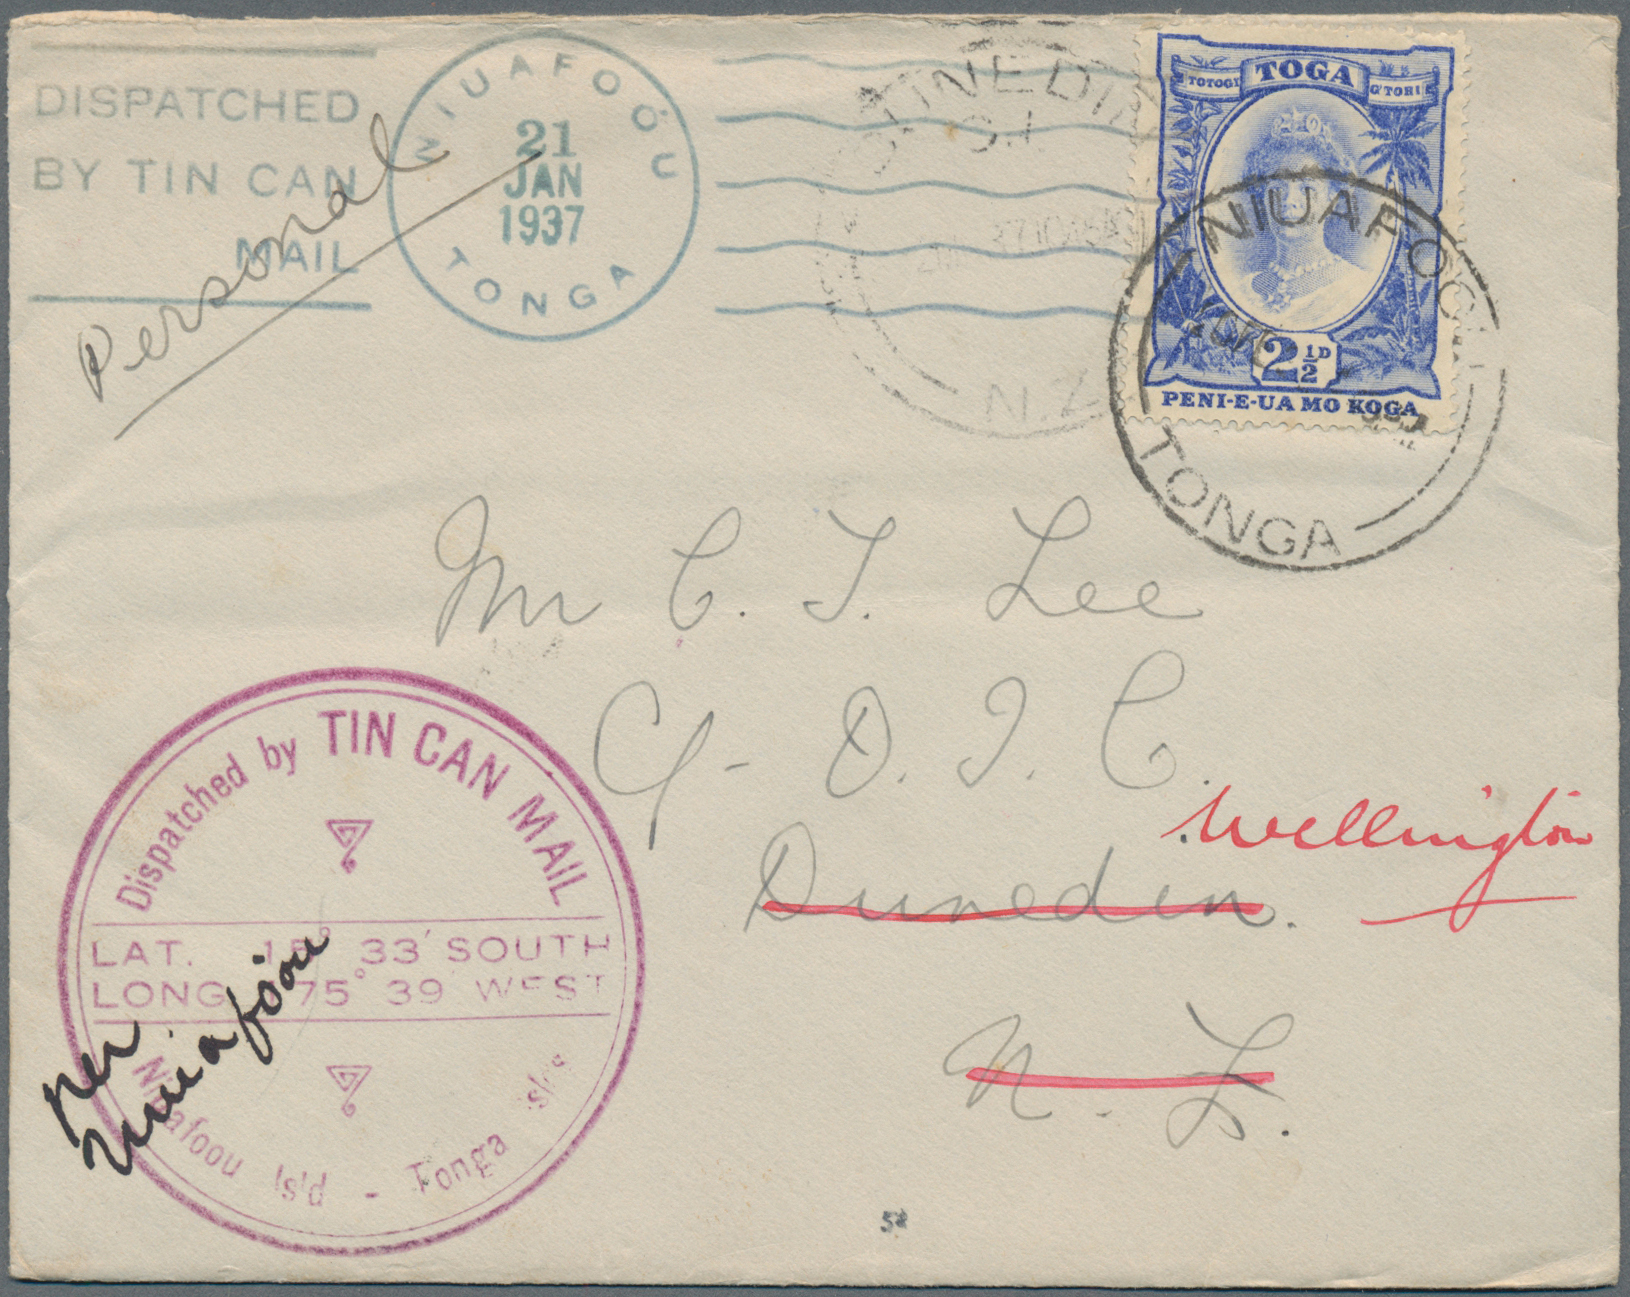 DISPATCHED
BY TIN CAN
MAIL
NIUAFOÓU
21
JAN
1937
TONGA
Personal
DUNEDIN
N.Z
TOGA
TOTOGI
G'TORI
2½D
PENI-E-UA MO KOGA
NIUAFOOU
TONGA
Mr C. T. Lee
C/- D. I. C.
Wellington
Dunedin.
N. Z.
Dispatched by TIN CAN MAIL
LAT. 15° 33' SOUTH
LONG 175° 39 WEST
Niuafoou Isld - Tonga Isles
per
Niuafoou
58